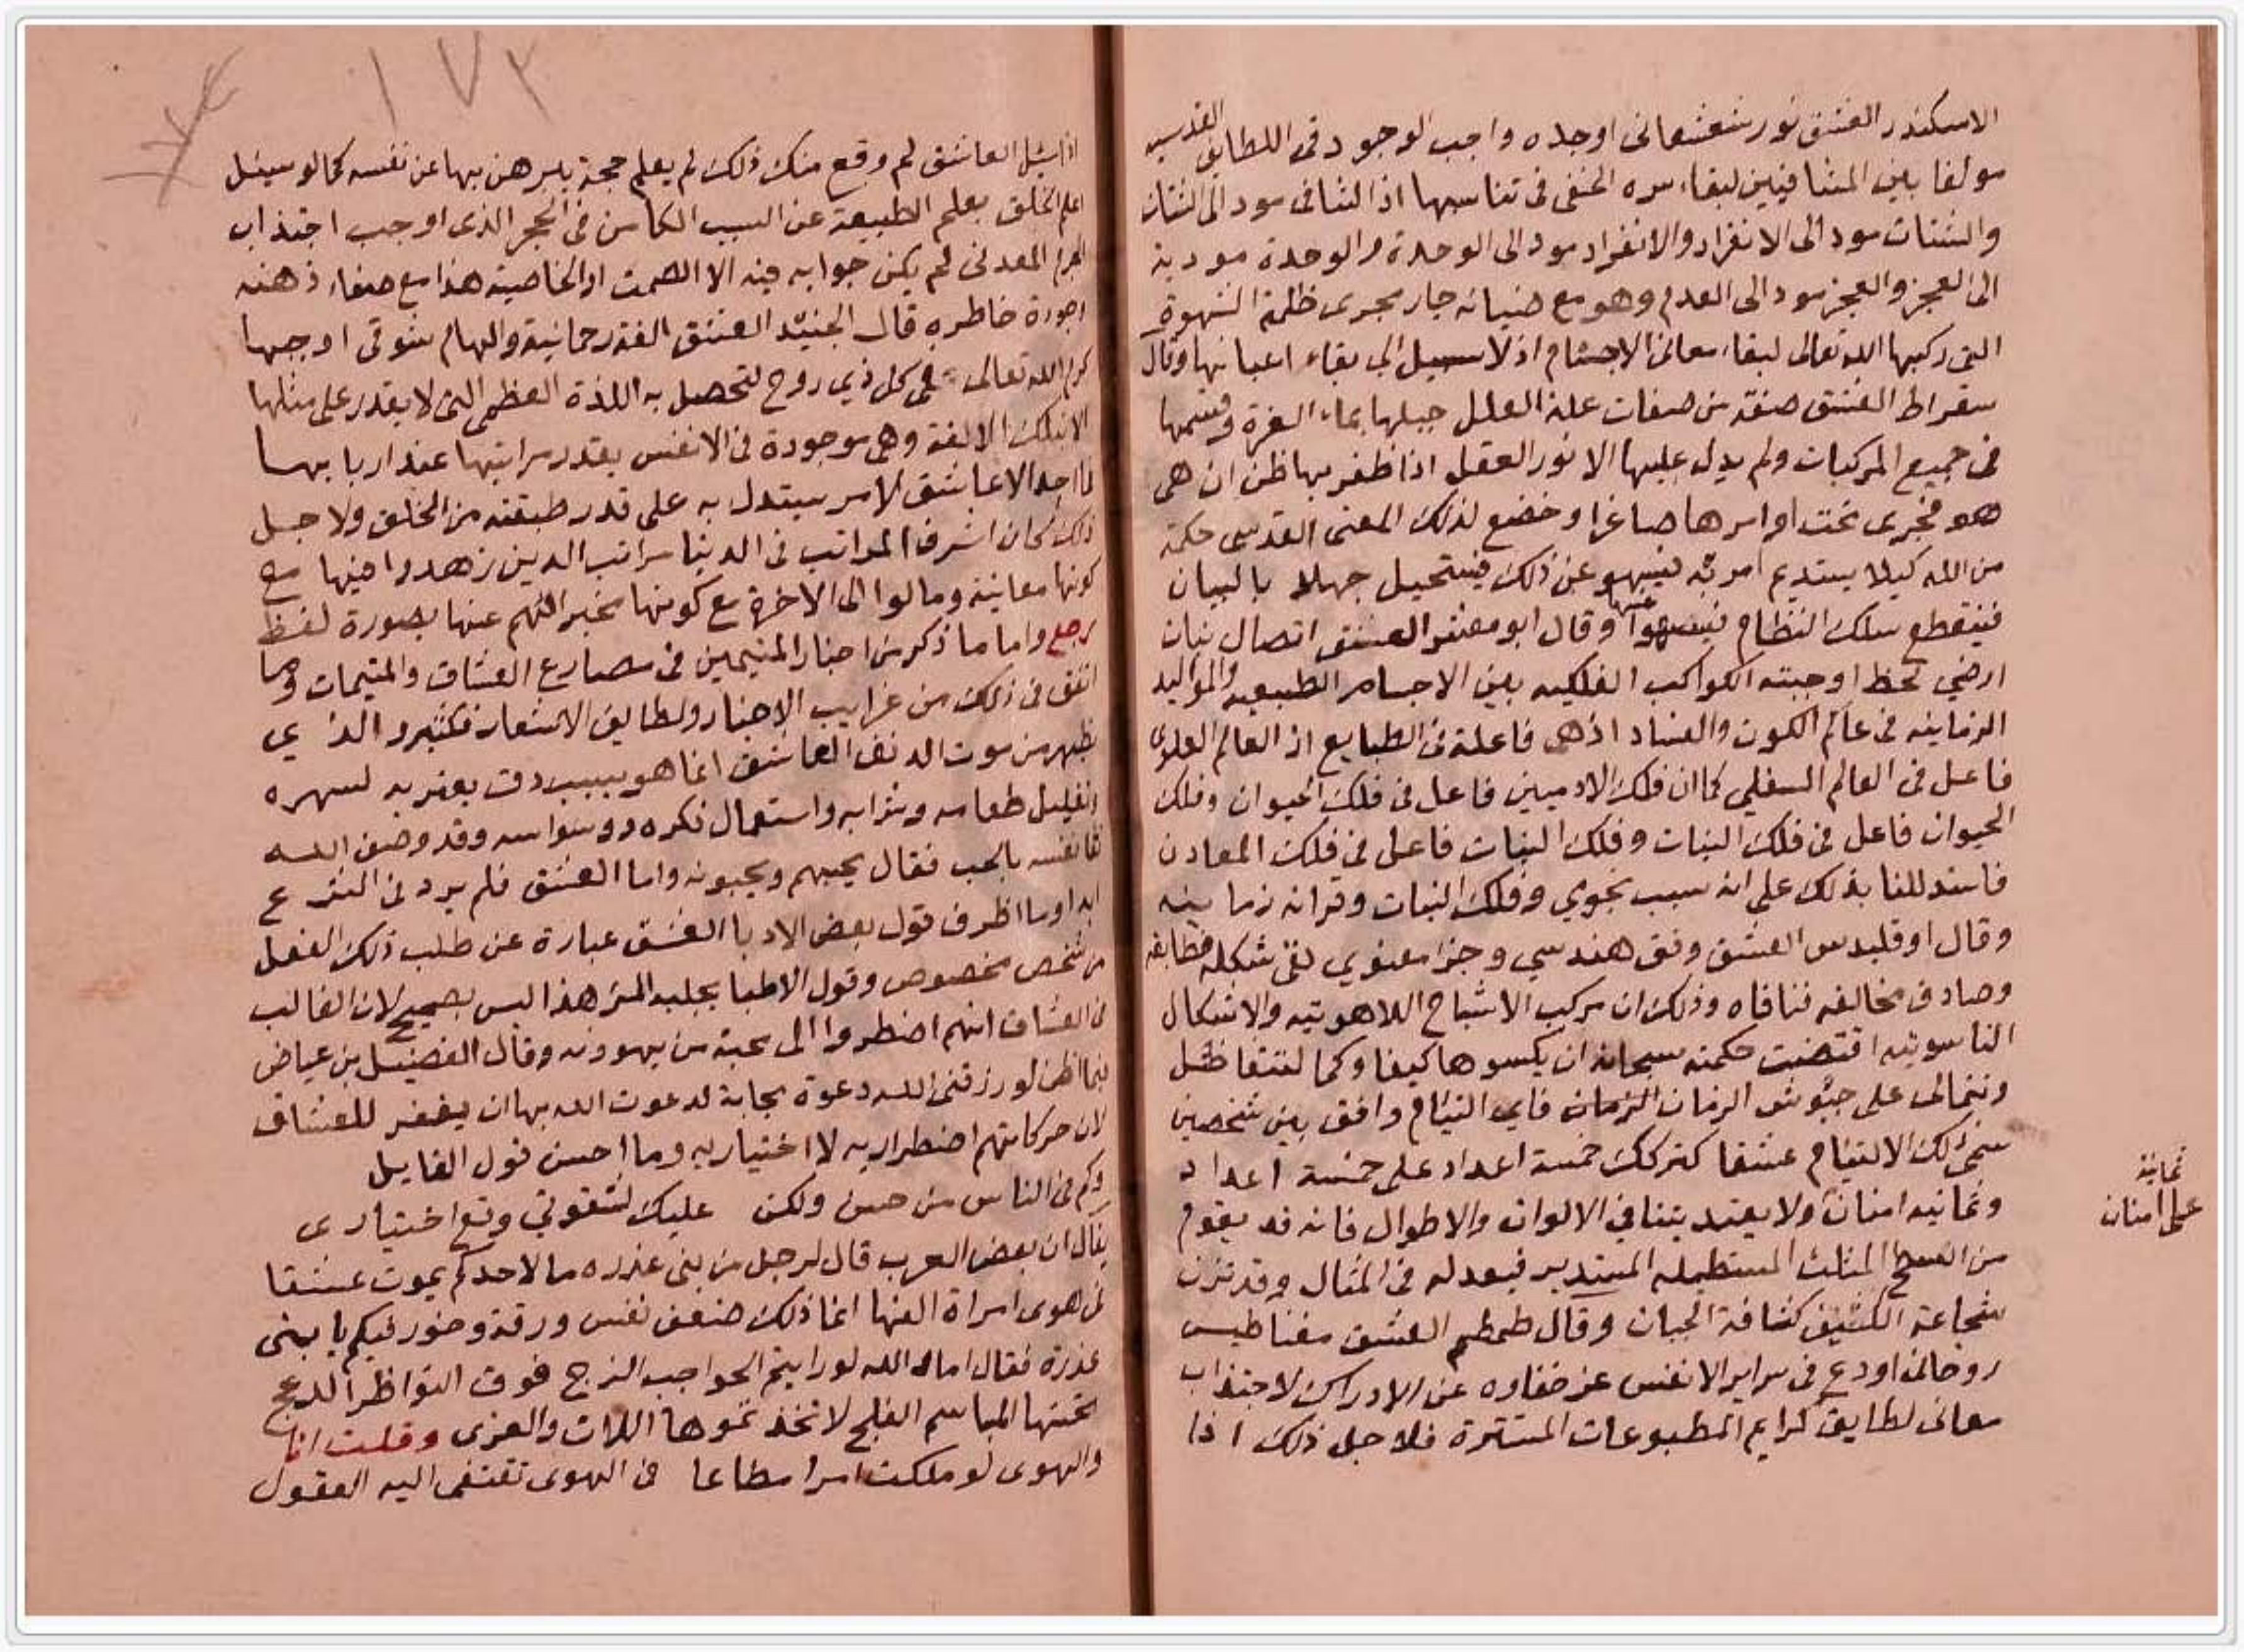 الاسكندر العشق نور شعشعانى اوجده واجب الوجود فى اللطايف القدسيه
مولفا بين المتنافيين لبقاء سره الخفى فى تناسبها اذ التنافى مود الى الشتات
والشتات مود الى الانفراد والانفراد مود الى الوحدة والوحدة مودية
الى العجز والعجز مود الى العدم وهو مع ضيائه جار مجرى ظلمة الشهوة
التى ركبها الله تعالى لبقاء معانى الاجسام اذ لا سبيل الى بقاء اعيانها وقال
سقراط العشق صفة من صفات علة العلل جبلها بماء العزة وقسمها
فى جميع المركبات ولم يدل عليها الا نور العقل اذا ظفر بها ظن ان هى
هو فجرى تحت اوامرها صاغرا وخضع لذلك المعنى القدسى حكمة
من الله كيلا يستديم امرته فيسهو عن ذلك فيستحيل جهلا بالبيان
فينقطع سلك النظام عنها وقال ابو معشر العشق اتصال نبات
ارضي لحظ اوجبته الكواكب الفلكيه بين الاجسام الطبيعيه والمواليد
الزمانيه فى عالم الكون والفساد اذ هى فاعلة فى الطبايع اذ العالم العلوى
فاعل فى العالم السفلي كما ان فلك الادميين فاعل فى فلك الحيوان وفلك
الحيوان فاعل فى فلك النبات وفلك النبات فاعل فى فلك المعادن
فاستدللنا بذلك على انه سبب نجوي وفلك النبات وقرانه زمانيه
وقال اوقليدس العشق وفق هندسي وجزا معنوي لقى شكله فطابقه
وصادف مخالفه فنافاه وذلك ان مركب الاشباح اللاهوتيه والاشكال
الناسوتيه اقتضت حكمته سبحانه ان يكسوها كيفا وكما لتتفاضل
وتتمالى على جيوش الزمان فاي التيام وافق بين شخصين
سمى ذلك الالتيام عشقا كتركك خمسة اعداد على خمسة اعداد
وثمانيه امنان ولا يعتد بتنافي الالوان والاطوال فانه قد يقوم
ثمانية
على امنان
من السطح المثلث المستطيله المستدير فيعدله فى المثال وقد تزن
شجاعة الكثيف كثافة الجبان وقال طمطم العشق مغناطيس
روحانى اودع فى سراير الانفس عز خفاوه عن الادراك لاجتذاب
معانى لطايف كرايم المطبوعات المستترة فلاجل ذلك اذا
اذا سئل العاشق لم وقع منك ذلك لم يعلم حجة يبرهن بها عن نفسه كما لو سيئل
اعلم الخلق بعلم الطبيعة عن السبب الكامن فى الحجر الذى اوجب اجتذاب
الجرم المعدنى لم يكن جوابه فيه الا الصمت او الخاصية هذا مع صفاء ذهنه
وجودة خاطره قال الجنيد العشق الفة رحمانية والهام شوقى اوجبها
كرم الله تعالى على كل ذي روح لتحصل به اللذة العظمى التى لا يقدر على مثلها
الا بتلك الالفة وهى موجودة فى الانفس بقدر مراتبها عند اربابها
فما احد الا عاشق لامر يستدل به على قدر طبقته من الخلق ولاجل
ذلك كان اشرف المراتب فى الدنيا مراتب الذين زهدوا فيها مع
كونها معاينة ومالوا الى الاخرة مع كونها مخبر الهم عنها بصورة لفظ
رجع واما ما ذكر من اخبار المتيمين فى مصارع العشاق والمتيمات وما
اتفق فى ذلك من غرايب الاخبار ولطايف الاشعار فكثير والذي
يظهر من موت الدنف العاشق انما هو بسبب دق يعتريه لسهره
وتقليل طعامه وشرابه واستعمال فكره ووسواسه وقد وصف الله
تعا نفسه بالحب فقال يحبهم ويحبونه واما العشق فلم يرد فى الشرع
ابدا وما اظرف قول بعض الادبا العشق عبارة عن طلب ذلك الفعل
من شخص مخصوص وقول الاطبا يجلبه المرء هذا ليس بصحيح لان الغالب
من العشاق انهم اضطروا الى محبة من يهوونه وقال الفضيل بن عياض
فيما اظن لو رزقنى الله دعوة مجابة لدعوت الله بها ان يغفر للعشاق
لان حركاتهم اضطراريه لا اختياريه وما احسن قول القايل
وكم فى الناس من حسن ولكن عليك لشقوتي وقع اختيارى
يقال ان بعض العرب قال لرجل من بنى عذره ما لاحدكم يموت عشقا
فى هوى امراة الفها انما ذلك ضعف نفس ورقة وخور فيكم يا بنى
عذرة فقال اما والله لو رايتم الحواجب الزج فوق النواظر الدعج
تحتها المباسم الفلج لاتخذتموها اللات والعزى وقلت انا
والهوى لو ملكت امرا مطاعا فى الهوى تقتفى اليه العقول
١٧٢